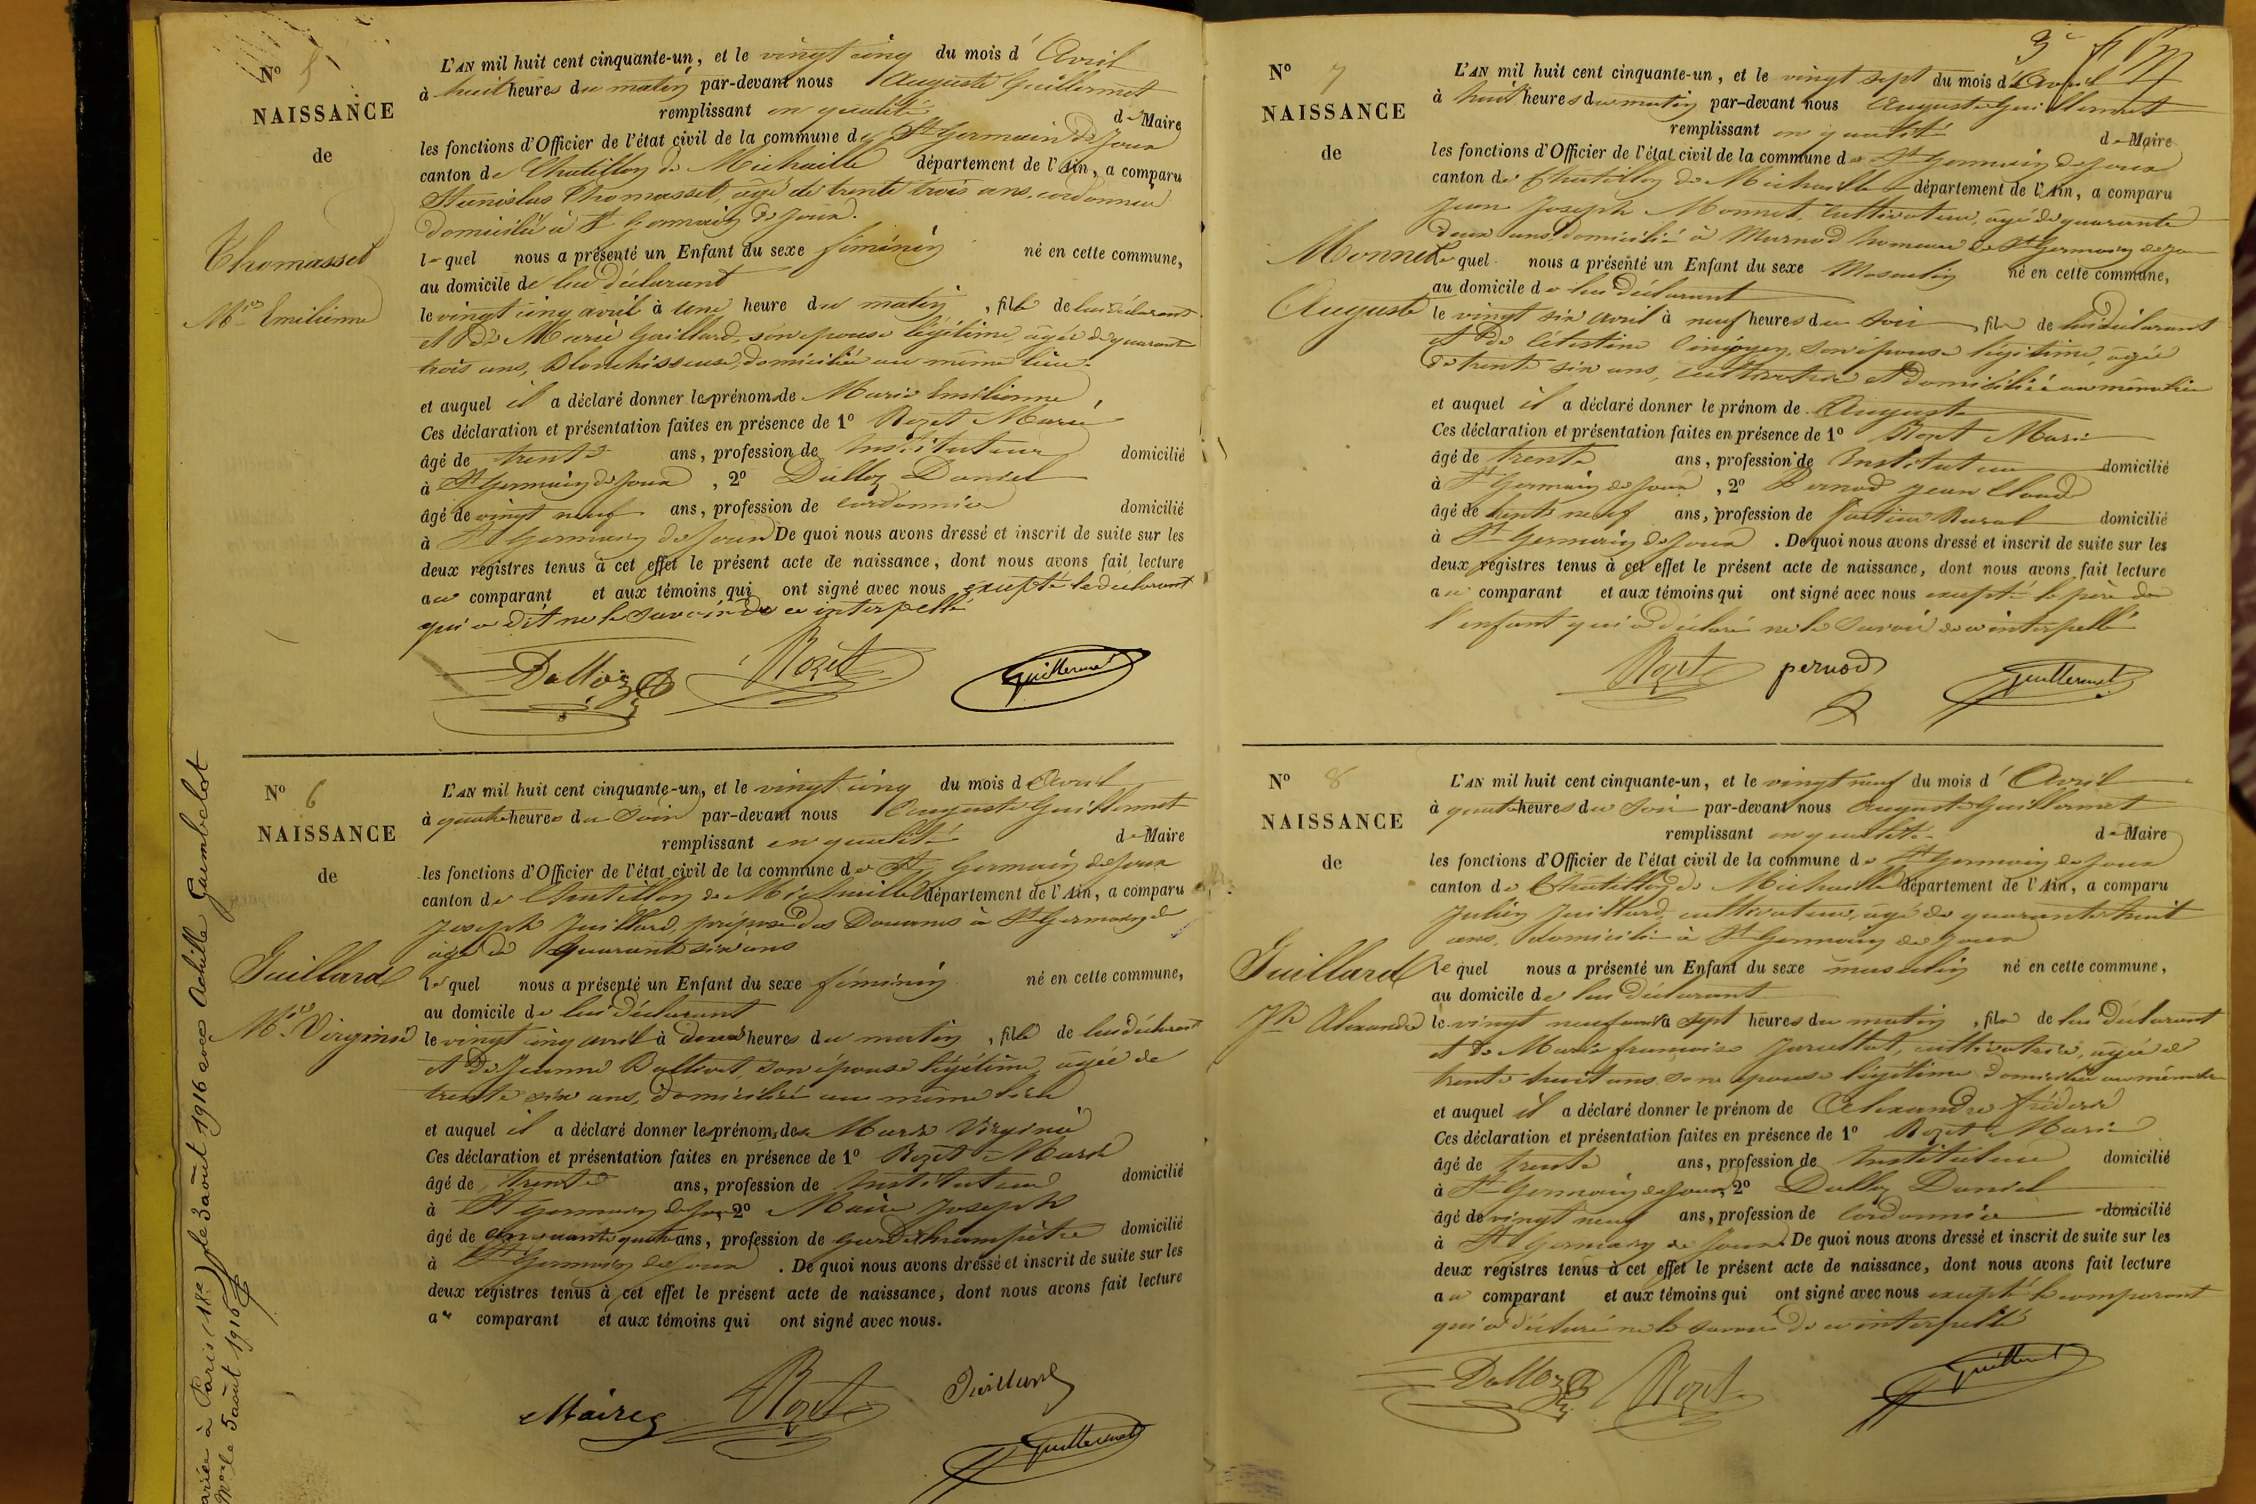 N° 5
NAISSANCE
de
Thomasset
M.ie Emilienne
L'AN mil huit cent cinquante-un, et le vingt cinq du mois d'Avril
à huit heures du matin par-devant nous Auguste Guillermet
remplissant en qualité de Maire
les fonctions d'Officier de l'état civil de la commune de St Germain de Joux
canton de Chatillon de Michaille département de l'Ain, a comparu
Stanislas Thomasset, âgé de trente trois ans, cordonnier
domicilié à St Germain de Joux.
lequel nous a présenté un Enfant du sexe féminin né en cette commune,
au domicile de lui déclarant
le vingt cinq avril à une heure du matin, fille de lui déclarant
et de Marie Gaillard, son épouse légitime, âgée de quarante
trois ans, Blanchisseuse, domiciliée au même lieu.
et auquel il a déclaré donner les prénoms de Marie Emilienne
Ces déclaration et présentation faites en présence de 1° Rozet Marie
âgé de trente ans, profession de Instituteur domicilié
à St Germain de Joux, 2° Dalloz Daniel
âgé de vingt neuf ans, profession de cordonnier domicilié
à St Germain de Joux De quoi nous avons dressé et inscrit de suite sur les
deux registres tenus à cet effet le présent acte de naissance, dont nous avons fait lecture
au comparant et aux témoins qui ont signé avec nous excepté le déclarant
qui a dit ne le savoir de ce interpellé
Dalloz Rozet Guillermet
N° 6
NAISSANCE
de
Juillard
M.ie Virginie
L'AN mil huit cent cinquante-un, et le vingt cinq du mois d'Avril
à quatre heures du soir par-devant nous Auguste Guillermet
remplissant en qualité de Maire
les fonctions d'Officier de l'état civil de la commune de St Germain de Joux
canton de Chatillon de Michaille département de l'Ain, a comparu
Joseph Juillard, préposé des Douanes à St Germain de
âgé de quarante six ans
lequel nous a présenté un Enfant du sexe féminin né en cette commune,
au domicile de lui déclarant
le vingt cinq avril à deux heures du matin, fille de lui déclarant
et de Jeanne Ballivet, son épouse légitime, âgée de
trente six ans, domiciliée au même lieu
et auquel il a déclaré donner les prénoms de Marie Virginie
Ces déclaration et présentation faites en présence de 1° Rozet Marie
âgé de trente ans, profession de Instituteur domicilié
à St Germain de Joux 2° Maire Joseph
âgé de cinquante quatre ans, profession de garde champêtre domicilié
à St Germain de Joux. De quoi nous avons dressé et inscrit de suite sur les
deux registres tenus à cet effet le présent acte de naissance, dont nous avons fait lecture
au comparant et aux témoins qui ont signé avec nous.
Maire Rozet Juillard
Guillermet
ariée à Paris (18e) le 3 août 1916 avec Achille Gambelot
Mon le 5 août 1916
3e
N° 7
NAISSANCE
de
Monnet
Auguste
L'AN mil huit cent cinquante-un, et le vingt sept du mois d'Avril
à huit heures du matin par-devant nous Auguste Guillermet
remplissant en qualité de Maire
les fonctions d'Officier de l'état civil de la commune de St Germain de Joux
canton de Chatillon de Michaille département de l'Ain, a comparu
Jean Joseph Monnet, cultivateur, âgé de quarante
deux ans, domicilié à Marnod hameau de St Germain de Jou
lequel nous a présenté un Enfant du sexe Masculin né en cette commune,
au domicile de lui déclarant
le vingt six avril à neuf heures du soir, fils de lui déclarant
et de Célestine son épouse légitime, âgée
de trente six ans, cultivatrice et domiciliée au même lieu
et auquel il a déclaré donner le prénom de Auguste
Ces déclaration et présentation faites en présence de 1° Rozet Marie
âgé de trente ans, profession de Instituteur domicilié
à St Germain de Joux, 2° Pernod Jean Claude
âgé de trente neuf ans, profession de facteur Rural domicilié
à St Germain de Joux. De quoi nous avons dressé et inscrit de suite sur les
deux registres tenus à cet effet le présent acte de naissance, dont nous avons fait lecture
au comparant et aux témoins qui ont signé avec nous excepté le père de
l'enfant qui a déclaré ne le savoir de ce interpellé
Rozet pernod Guillermet
N° 8
NAISSANCE
de
Juillard
Jh Alexandre
L'AN mil huit cent cinquante-un, et le vingt neuf du mois d'Avril
à quatre heures du soir par-devant nous Auguste Guillermet
remplissant en qualité de Maire
les fonctions d'Officier de l'état civil de la commune de St Germain de Joux
canton de Chatillon de Michaille département de l'Ain, a comparu
Julien Juillard, cultivateur, âgé de quarante huit
ans, domicilié à St Germain de Joux
lequel nous a présenté un Enfant du sexe masculin né en cette commune,
au domicile de lui déclarant
le vingt neuf avril à sept heures du matin, fils de lui déclarant
et de Marie françoise cultivatrice, âgée de
trente huit ans, son épouse légitime domiciliée au même lieu
et auquel il a déclaré donner le prénom de Alexandre fréderic
Ces déclaration et présentation faites en présence de 1° Rozet Marie
âgé de trente ans, profession de Instituteur domicilié
à St Germain de Joux, 2° Dalloz Daniel
âgé de vingt neuf ans, profession de Cordonnier domicilié
à St Germain de Joux. De quoi nous avons dressé et inscrit de suite sur les
deux registres tenus à cet effet le présent acte de naissance, dont nous avons fait lecture
au comparant et aux témoins qui ont signé avec nous excepté le comparant
qui a déclaré ne le savoir de ce interpellé
Dalloz Rozet Guillermet